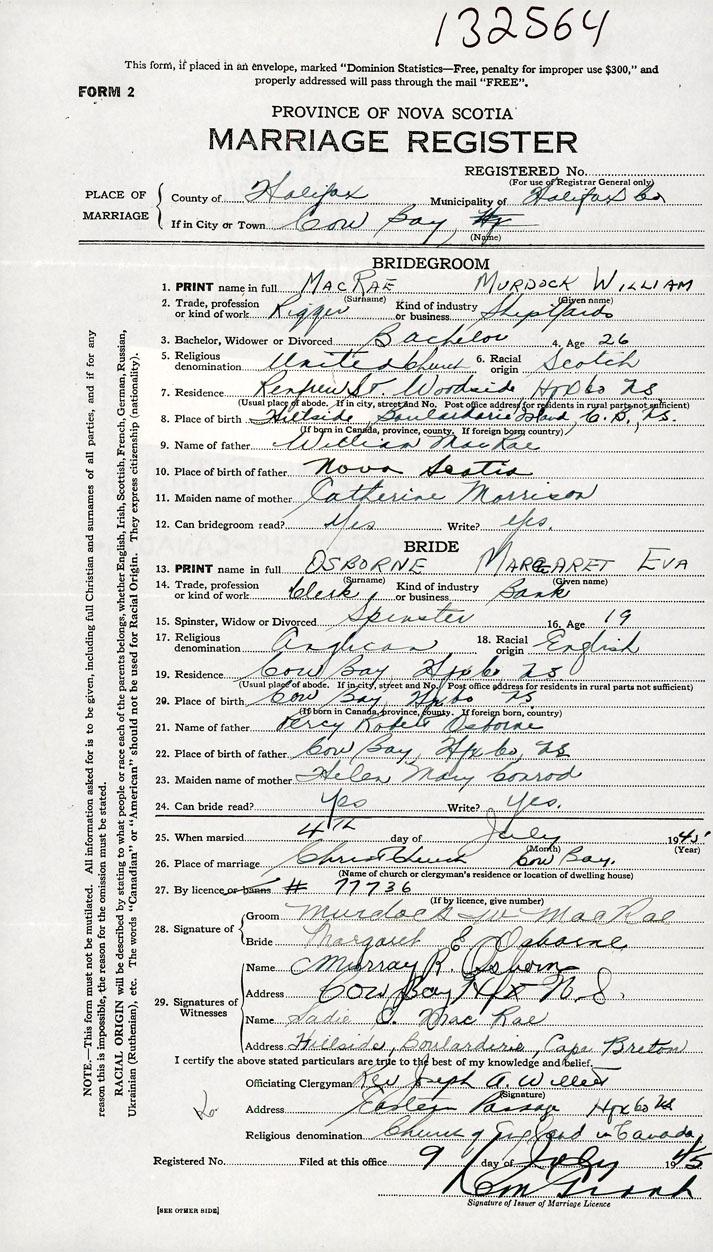 132564
This form, if placed in an envelope, marked "Dominion Statistics—Free, penalty for improper use $300," and
properly addressed will pass through the mail "FREE".
FORM 2
PROVINCE OF NOVA SCOTIA
MARRIAGE REGISTER
REGISTERED No.
(For use of Registrar General only)
PLACE OF MARRIAGE
County of Halifax Municipality of Halifax Co
If in City or Town Cow Bay
(Name)
BRIDEGROOM
1. PRINT name in full MACRAE MURDOCK WILLIAM
(Surname) (Given name)
2. Trade, profession or kind of work Rigger Kind of industry or business Shipyards
3. Bachelor, Widower or Divorced Bachelor 4. Age 26
5. Religious denomination United Church 6. Racial origin Scotch
7. Residence Renfrew St Woodside Hfx Co NS
(Usual place of abode. If in city, street and No. Post office address for residents in rural parts not sufficient)
8. Place of birth Hillside, Boularderie Island C.B., N.S.
(If born in Canada, province, county. If foreign born, country)
9. Name of father William MacRae
10. Place of birth of father Nova Scotia
11. Maiden name of mother Catherine Morrison
12. Can bridegroom read? Yes Write? Yes.
BRIDE
13. PRINT name in full OSBORNE MARGARET EVA
(Surname) (Given name)
14. Trade, profession or kind of work Clerk Kind of industry or business Bank
15. Spinster, Widow or Divorced Spinster 16. Age 19
17. Religious denomination Anglican 18. Racial origin English
19. Residence Cow Bay Hfx Co NS
(Usual place of abode. If in city, street and No. Post office address for residents in rural parts not sufficient)
20. Place of birth Cow Bay, Hfx Co NS
(If born in Canada, province, county. If foreign born, country)
21. Name of father Percy Robert Osborne
22. Place of birth of father Cow Bay, Hfx Co, NS
23. Maiden name of mother Helen Mary Conrod
24. Can bride read? Yes Write? Yes.
25. When married 4th day of July 1945
(Month) (Year)
26. Place of marriage Christ Church Cow Bay.
(Name of church or clergyman's residence or location of dwelling house)
27. By licence or banns # 77736
(If by licence, give number)
28. Signature of
Groom Murdock W MacRae
Bride Margaret E Osborne
29. Signatures of Witnesses
Name Murray R. Osborn
Address Cow Bay Hfx N.S.
Name Sadie C. MacRae
Address Hillside, Boularderie, Cape Breton
I certify the above stated particulars are true to the best of my knowledge and belief.
Officiating Clergyman Rev Joseph A. Willett
(Signature)
Address Eastern Passage Hfx Co NS
Religious denomination Church of England in Canada
Registered No. Filed at this office 9 day of July 1945
Signature of Issuer of Marriage Licence
[SEE OTHER SIDE]
NOTE.—This form must not be mutilated. All information asked for is to be given, including full Christian and surnames of all parties, and if for any
reason this is impossible, the reason for the omission must be stated.
RACIAL ORIGIN will be described by stating to what people or race each of the parents belongs, whether English, Irish, Scottish, French, German, Russian,
Ukrainian (Ruthenian), etc. The words "Canadian" or "American" should not be used for Racial Origin. They express citizenship (nationality).